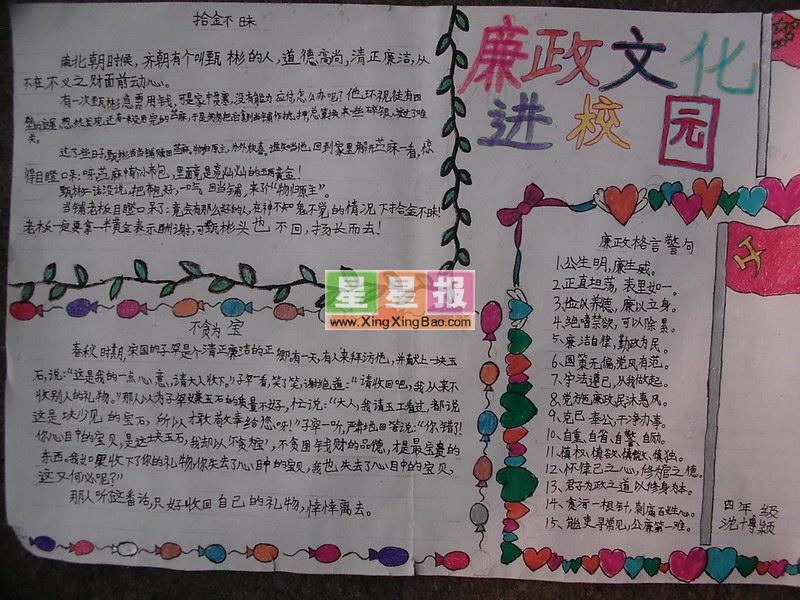 拾金不昧
南北朝时候,齐朝有个叫甄彬的人,道德高尚,清正廉洁,从
不在不义之财面前动心。
有一次甄彬急需用钱,可是家中贫寒,没有能力应付,怎么办呢?他环视徒有四
过了些日子,甄彬
得目瞪口呆:呀,芝麻中有个布包,里面竟是亮灿灿的五两黄金!
甄彬二话没说,把布包好,一口气回当铺,来个"物归原主"。
当铺老板目瞪口呆了:竟会有那么好的人,在神不知鬼不觉的情况下拾金不昧!
老板一定要拿一半黄金表示酬谢,可甄彬头也不回,扬长而去!
不贪为宝
春秋时期,宋国的子罕是个清正廉洁的正卿有一天,有人来拜访他,并献上一块玉
石,说:"这是我的一点心意,请大人收下。"子罕一看,笑了笑,谢绝道:"请收回吧,我从来不
收别人的礼物。"那人以为子罕嫌玉石的质量不好,忙说:"大人,我请玉工看过,都说
这是块少见的宝石,所以才敢献给您呀!"子罕一听,严肃地回答说:"你错了!
你心目中的宝贝,是这块玉石,我却以"不贪为宝",不贪图钱财的品德,才是最宝贵的
东西。我如果收下了你的礼物,你失去了心目中的宝贝,我也失去了心目中的宝贝,
这又何必呢?"
那人听这番话,只好收回自己的礼物,悻悻离去。
廉政文化
进校园
廉政格言警句
1、公生明,廉生威。
2、正真坦荡,表里如一。
3、俭以养德,廉以立身。
4、绝嗜禁欲,可以除累。
5、廉洁自律,勤政为民。
6、国策无偏,党风有范。
7、守法遵己,从我做起。
8、党方施廉政民沐惠风。
9、克己奉公,干净办事。
10、自重,自省,自警,自励。
11、慎权,慎欲,慎微,慎独。
12、怀律己之心,修为官之德。
13、君子为政之道以修身为本。
14、贪污一根针,刺痛百姓心。
15、能吏寻常见,公廉第一难。
四年级
沈博颖
星星报
www.XingXingBao.com